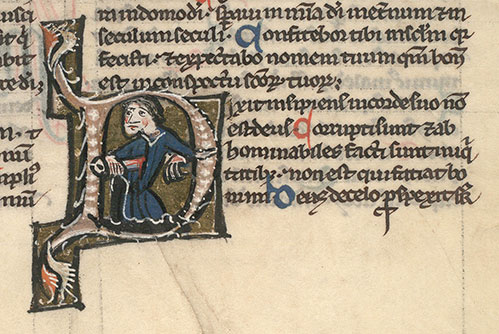 m in domo di. spaui in mia di mei in etnum & in
seculum seculi. Confitebor tibi in sclm qr
fecisti. & expectabo nomen tuum qm bon
est in conspectu scor tuor.
Dixit insipiens in corde suo no
est deus Corrupti sunt & ab
hominabiles facti sunt iniqi
tatib; non est qui faciat bo
num. Deus de celo pspexit sr